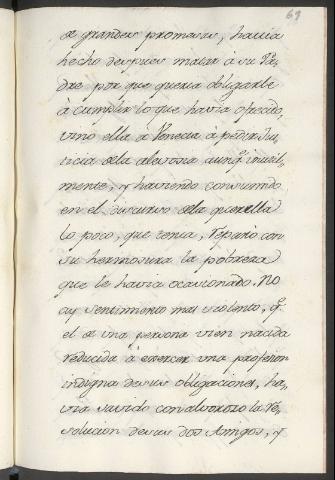 69
de grandes promesas, havia
hecho despues matar à su Pa-
dre por que queria obligarle
à cumplir lo que havia ofrecido,
vino ella à Venecia à pedir Jus-
ticia de la alevosia aunq. inutil-
mente, y haviendo consumido
en el discurso de la querella
lo poco, que tenia, reparò con
su hermosura la pobreza
que le havia ocasionado. No
ay sentimiento mas violento, q.
el de una persona vien nacida
reducida à exercer una profesion
indigna de sus obligaciones, ha-
via savido con alvorozo la re-
solucion de sus dos Amigos, y